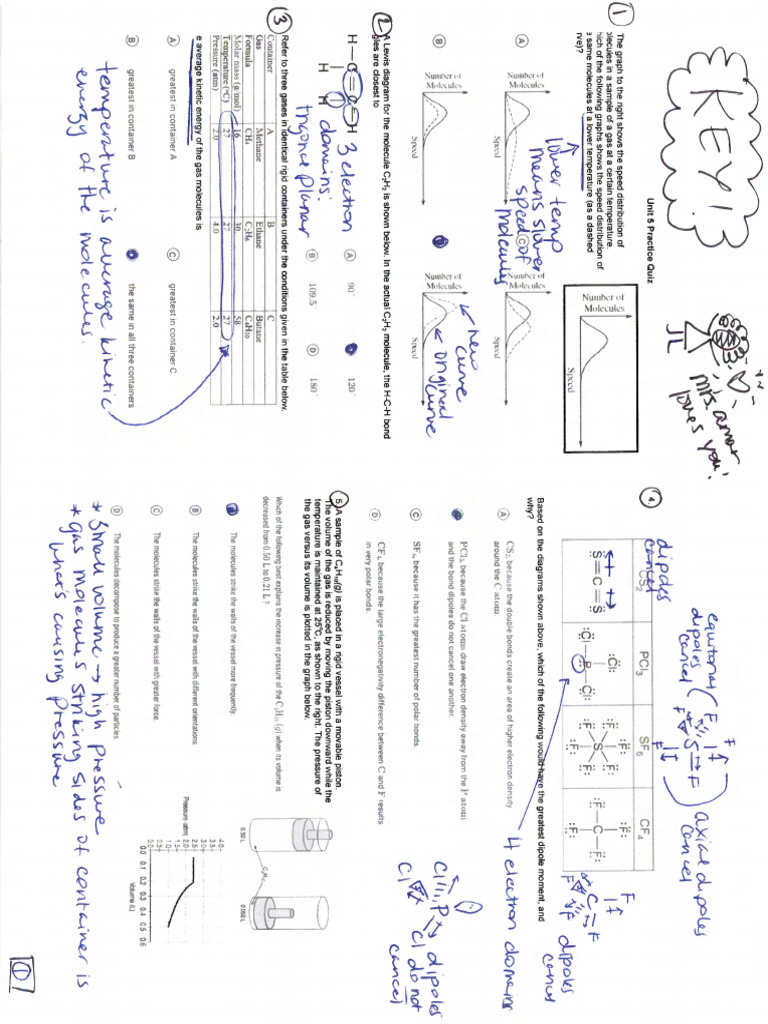 KEY!
Mrs. amar
loves you!
Unit 5 Practice Quiz
1
The graph to the right shows the speed distribution of
olecules in a sample of a gas at a certain temperature.
hich of the following graphs shows the speed distribution of
e same molecules at a lower temperature (as a dashed
rve)?
Number of
Molecules
Speed
A
Number of
Molecules
Speed
C
Number of
Molecules
Speed
lower temp
means slower
speed of
molecules
B
Number of
Molecules
Speed
Number of
Molecules
Speed
new
curve
original
curve
2
A Lewis diagram for the molecule C₂H₂ is shown below. In the actual C₂H₂ molecule, the H-C-H bond
gles are closest to
H—C=C—H
H H
3 electron
domains:
trigonal planar
A 90°
B 109.5°
120°
D 180°
3
Refer to three gases in identical rigid containers under the conditions given in the table below.
Container A B C
Gas Methane Ethane Butane
Formula CH₄ C₂H₆ C₄H₁₀
Molar mass (g/mol) 16 30 58
Temperature (°C) 27 27 27
Pressure (atm) 2.0 4.0 2.0
e average kinetic energy of the gas molecules is
A greatest in container A
B greatest in container B
C greatest in container C
the same in all three containers
temperature is average kinetic
energy of the molecules.
4.
CS₂ PCl₃ SF₆ CF₄
S=C=S
dipoles
cancel
equitorial
dipoles
cancel
axial dipoles
cancel
dipoles
cancel
Based on the diagrams shown above, which of the following would have the greatest dipole moment, and
why?
4 electron domains
A CS₂, because the double bonds create an area of higher electron density
around the C atom.
PCl₃, because the Cl atoms draw electron density away from the P atom
and the bond dipoles do not cancel one another.
C SF₆, because it has the greatest number of polar bonds.
D CF₄, because the large electronegativity difference between C and F results
in very polar bonds.
dipoles
do not
cancel
5. A sample of C₄H₁₀(g) is placed in a rigid vessel with a movable piston.
The volume of the gas is reduced by moving the piston downward while the
temperature is maintained at 25°C, as shown to the right. The pressure of
the gas versus its volume is plotted in the graph below.
0.50 L
0.050 L
Which of the following best explains the increase in pressure of the C₄H₁₀ (g) when its volume is
decreased from 0.50 L to 0.21 L?
The molecules strike the walls of the vessel more frequently.
B The molecules strike the walls of the vessel with different orientations.
C The molecules strike the walls of the vessel with greater force.
D The molecules decompose to produce a greater number of particles.
Pressure (atm)
4.0
3.5
3.0
2.5
2.0
1.5
1.0
0.5
0.0
0.0 0.1 0.2 0.3 0.4 0.5 0.6
Volume (L)
* Small volume → high pressure
* gas molecules striking sides of container is
what's causing pressure
1